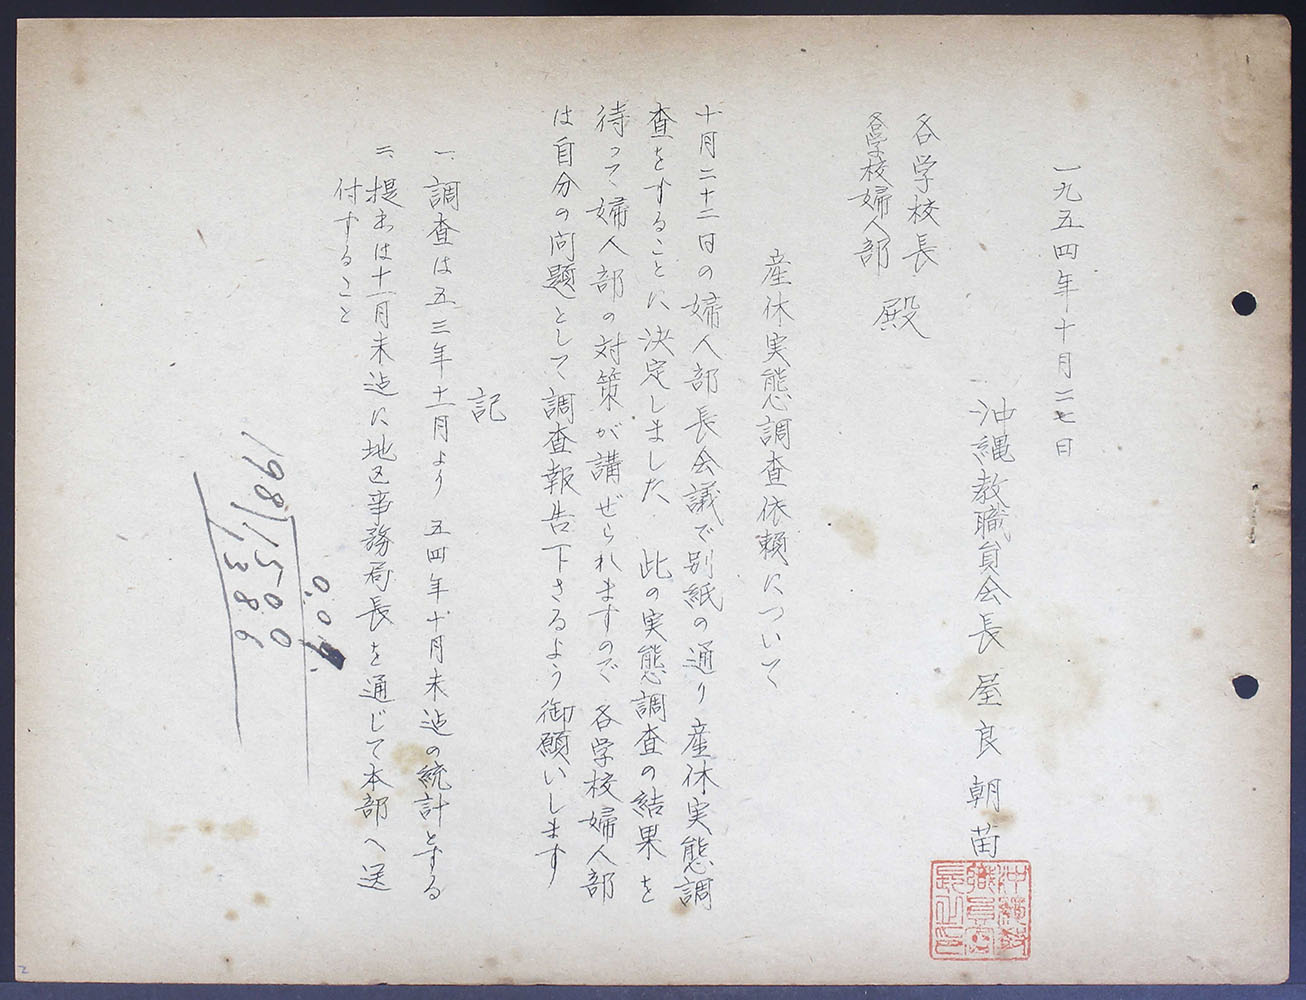 一九五四年十月二七日
沖縄教職員会長 屋良朝苗
沖縄教職員会長之印
各学校長
各学校婦人部
殿
産休実態調査依頼について
十月二十二日の婦人部長会議で別紙の通り産休実態調
査をすることに決定しました 此の実態調査の結果を
待って婦人部の対策が講ぜられますので 各学校婦人部
は自分の問題として調査報告下さるよう御願いします
記
一、調査は五三年十一月より 五四年十月末迠の統計とする
二、提出は十一月末迠に地区事務局長を通じて本部へ送
付すること
0.09
198 1500
1386
2